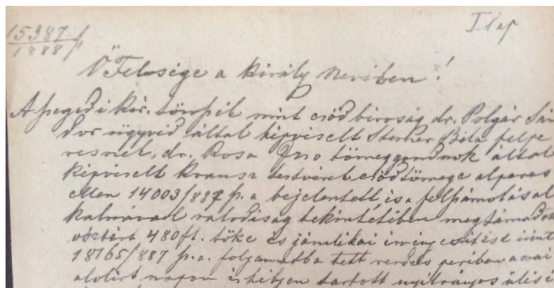 15387/1888 I lap
Ő Felsége a király nevében!
A szegedi kir. törvszék mint csődbiróság dr. Polgár Sán
dor ügyvéd által képviselt Sterker Béla felpe
resnek, dr. Rosa Izso tömeggondnok által
képviselt Krausz testvérek csődtömege alperes
ellen 14003/887 p.a. bejelentett és a felszámolás al
kalmával valódiság tekintetében megtámadt
480 ft. tőke és járulékai iránt
18765/887 p.a. folyamatba tett rendes perében a mai
alólirt napon és helyen tartott nyilvános ülésé